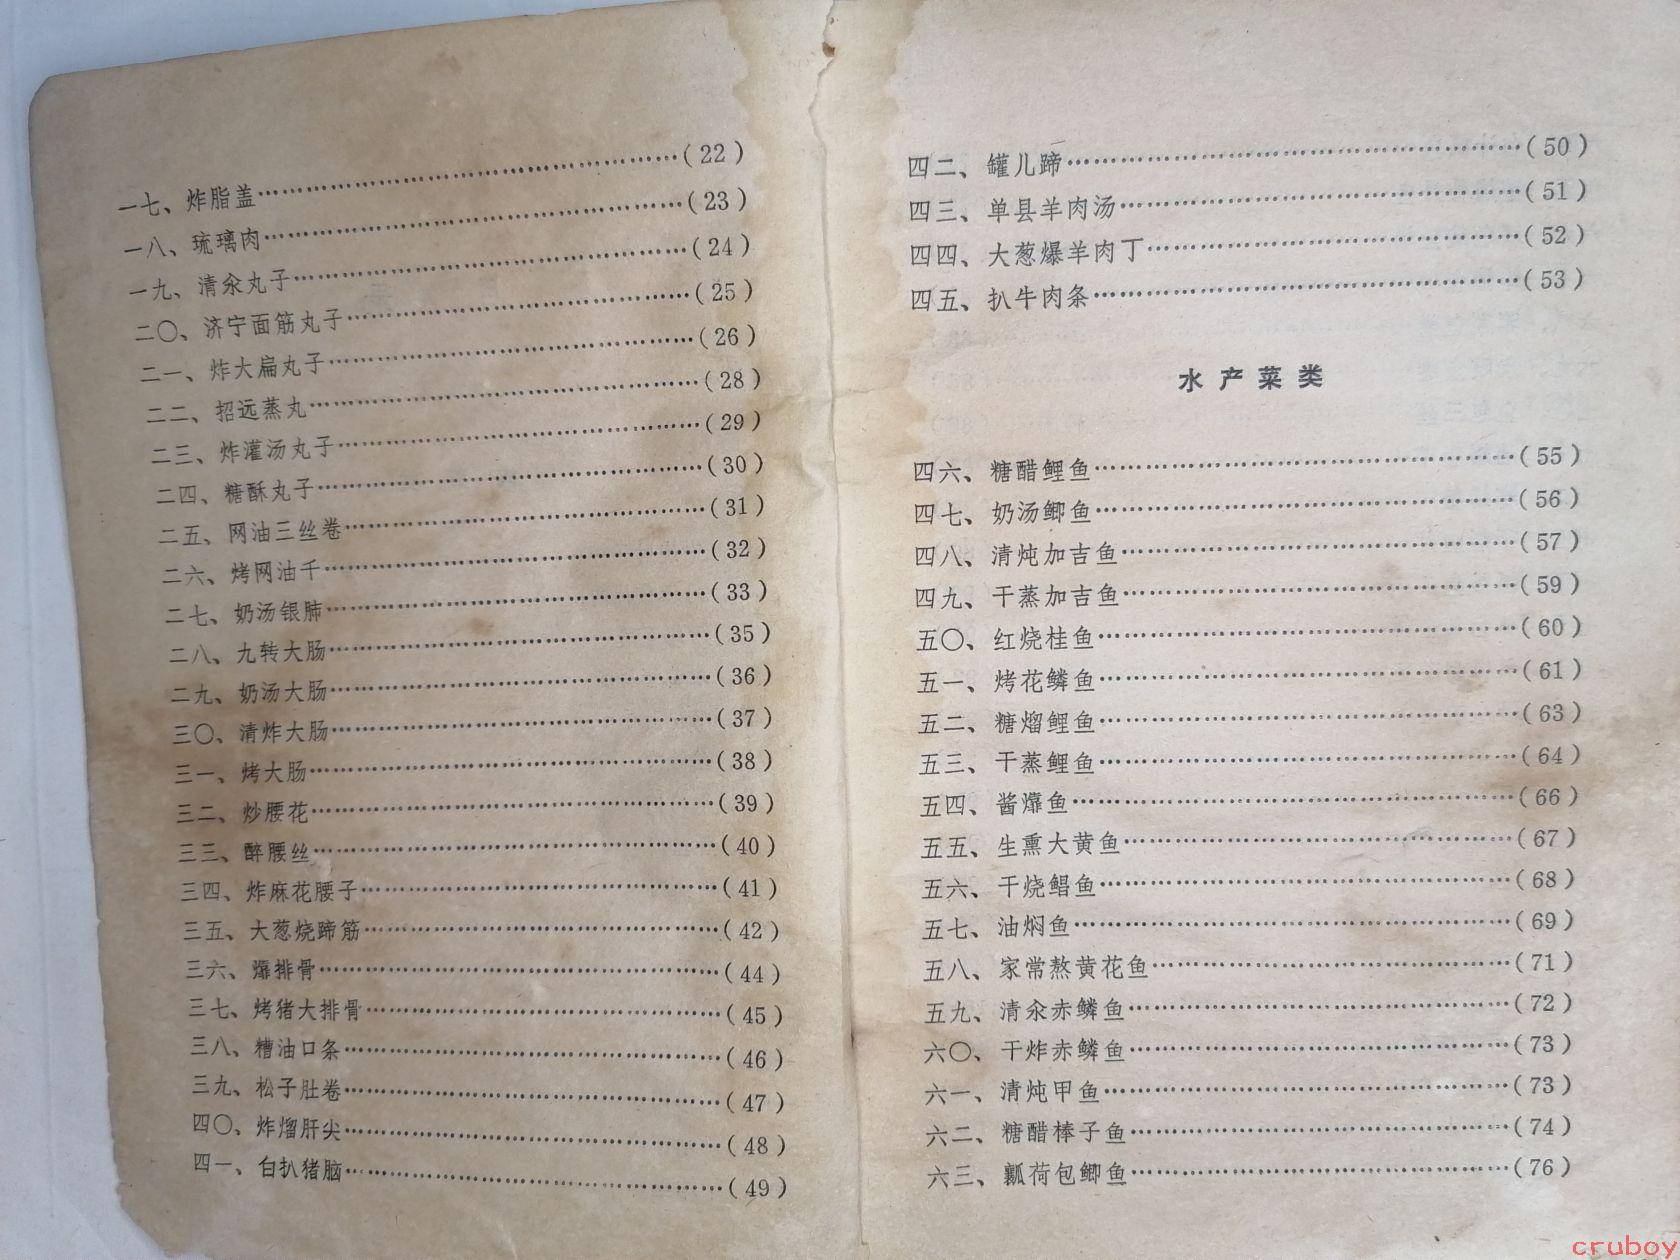 一七、炸脂盖……(22)
一八、琉璃肉……(23)
一九、清汆丸子……(24)
二〇、济宁面筋丸子……(25)
二一、炸大扁丸子……(26)
二二、招远蒸丸……(28)
二三、炸灌汤丸子……(29)
二四、糖酥丸子……(30)
二五、网油三丝卷……(31)
二六、烤网油千……(32)
二七、奶汤银肺……(33)
二八、九转大肠……(35)
二九、奶汤大肠……(36)
三〇、清炸大肠……(37)
三一、烤大肠……(38)
三二、炒腰花……(39)
三三、醉腰丝……(40)
三四、炸麻花腰子……(41)
三五、大葱烧蹄筋……(42)
三六、㸆排骨……(44)
三七、烤猪大排骨……(45)
三八、糟油口条……(46)
三九、松子肚卷……(47)
四〇、炸熘肝尖……(48)
四一、白扒猪脑……(49)
四二、罐儿蹄……(50)
四三、单县羊肉汤……(51)
四四、大葱爆羊肉丁……(52)
四五、扒牛肉条……(53)
水产菜类
四六、糖醋鲤鱼……(55)
四七、奶汤鲫鱼……(56)
四八、清炖加吉鱼……(57)
四九、干蒸加吉鱼……(59)
五〇、红烧桂鱼……(60)
五一、烤花鳞鱼……(61)
五二、糖熘鲤鱼……(63)
五三、干蒸鲤鱼……(64)
五四、酱㸆鱼……(66)
五五、生熏大黄鱼……(67)
五六、干烧鲳鱼……(68)
五七、油焖鱼……(69)
五八、家常熬黄花鱼……(71)
五九、清汆赤鳞鱼……(72)
六〇、干炸赤鳞鱼……(73)
六一、清炖甲鱼……(73)
六二、糖醋棒子鱼……(74)
六三、瓤荷包鲫鱼……(76)
cruboy